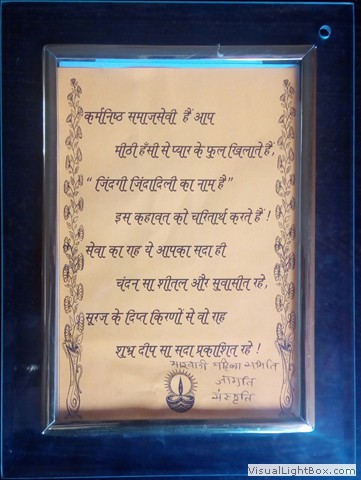 कर्मनिष्ठ समाजसेवी हैं आप
मीठी हँसी से प्यार के फुल खिलाते हैं,
“ जिंदगी जिंदादिली का नाम है”
इस कहावत को चरितार्थ करते हैं !
सेवा का राह ये आपका सदा ही
चंदन सा शीतल और सुवासीत रहे,
सूरज के दिप्त किरणों से वो राह
शुभ्र दीप सा सदा प्रकाशित रहे !
मारवाडी महिला समिति
जागृति
संस्कृति
VisualLightBox.com